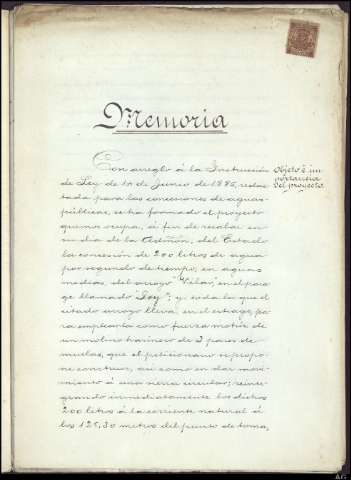 Memoria
Con arreglo á la Instrucción
de Ley de 14 de Junio de 1883, redac
tada para las concesiones de aguas
públicas, se ha formado el proyecto
que nos ocupa, á fin de recabar en
su día de la Admón. del Estado
la concesión de 200 litros de agua
por segundo de tiempo, en aguas
medias, del arroyo "Vilas" en el para
ge llamado "Foy"; y toda la que el
citado arroyo lleva en el estiage, pa
ra emplearla como fuerza motriz de
un molino harinero de 3 pares de
muelas, que el peticionario se propo
ne construir, así como en dar movi
miento á una sierra circular; reinte
grando inmediatamente los dichos
200 litros á la corriente natural á
los 125,30 metros del punto de toma,
Objeto é im
portancia
del proyecto.